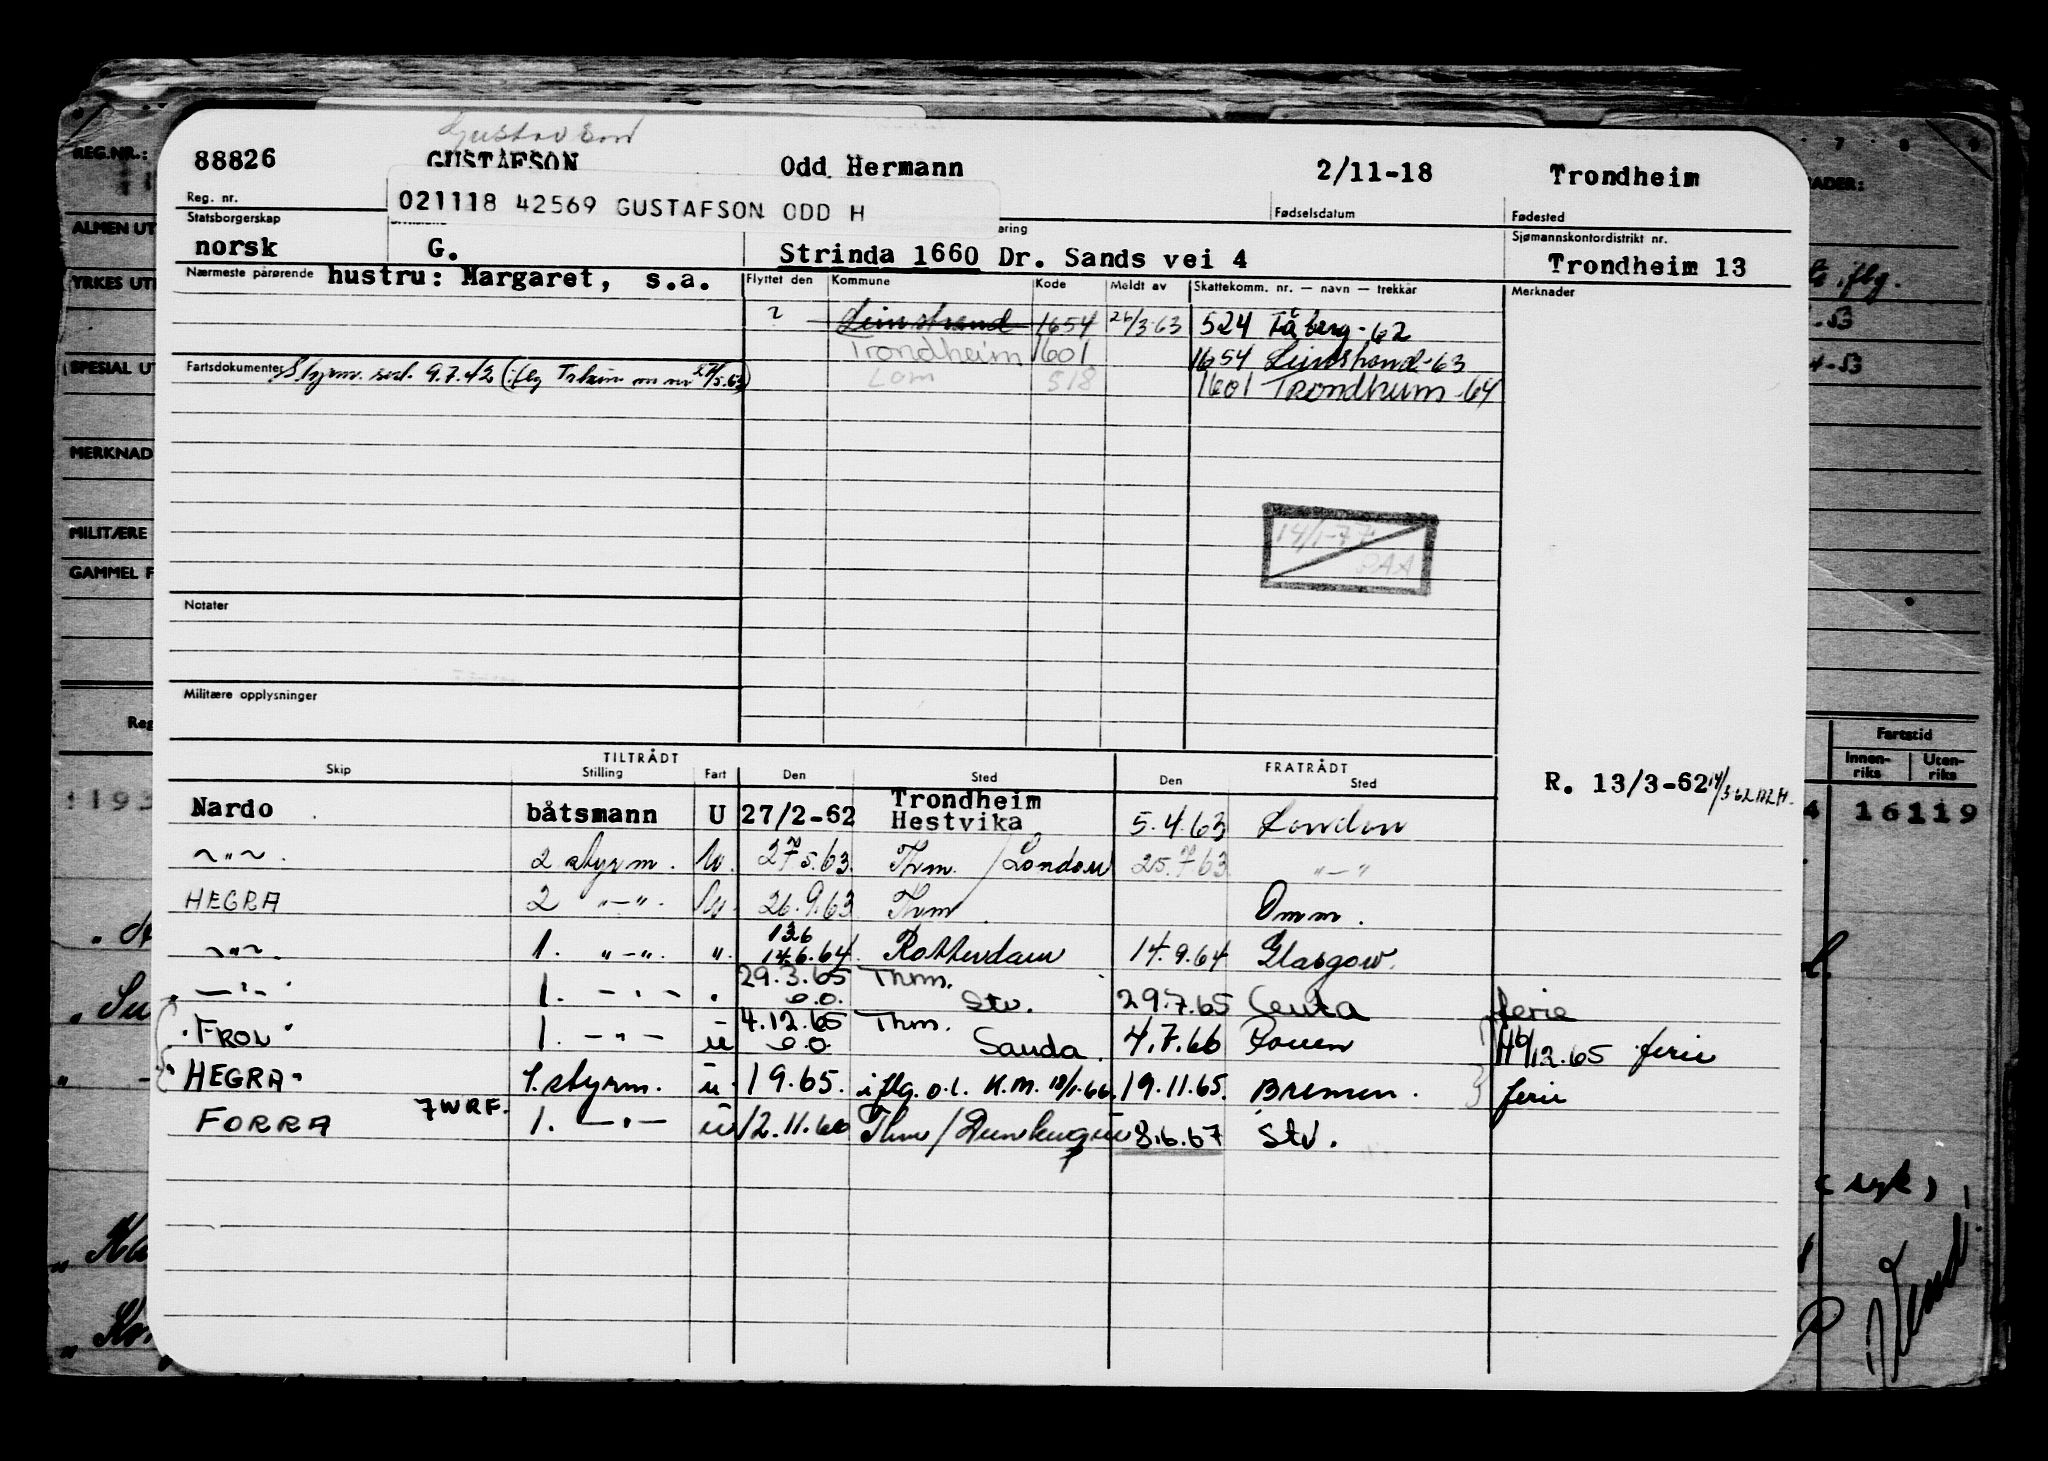 Gustavson
88826 GUSTAFSON Odd Hermann 2/11-18 Trondheim
Reg. nr. 021118 42569 GUSTAFSON ODD H Fødselsdatum Fødested
Statsborgerskap Sjømannskontordistrikt nr.
norsk G. Strinda 1660 Dr. Sands vei 4 Trondheim 13
Nærmeste pårørende hustru: Margaret, s.a. Flyttet den Kommune Kode Meldt av Skattekomm. nr. — navn — trekkår Merknader
Leinstrand 1654 26/3-63 524 Fåberg-62
Trondheim 1601 1654 Leinstrand-63
Fartsdokumenter Styrm. sert. 9.7.42 Lom 518 1601 Trondheim-64
14/1-77
PAA
Notater
Militære opplysninger
TILTRÅDT FRATRÅDT
Skip Stilling Fart Den Sted Den Sted
R. 13/3-62
Nardo båtsmann U 27/2-62 Trondheim Hestvika 5.4.63 London
~"~. 2 styrm. U. 27/5.63. Thm. / London 25.7.63 "—"
HEGRA 2 "—". U. 26.9.63 Thm. Omm.
~"~. 1. "—". ". 13.6 14.6.64. Rotterdam 14.9.64 Glasgow.
—"— 1. —"— " 29.3.65 o.o. Thm. Stv. 29.7.65 Ceuta ferie
"FROL" 1. —"— u 4.12.65 o.o. Thm. Sauda. 4.7.66 Rouen /12.65 ferie
"HEGRA" 1. styrm. u. 1 9.65. i flg. o.l. K.M. 18/1-66. 19.11.65. Bremen. ferie
FORRA 7WRF. 1. —"— u 12.11.66 Thm / 8.6.67 Stv.
REG.NR.:
ALMEN UT
YRKES UT
SPECIAL UT
MERKNAD
MILITÆRE
GAMMEL F
Reg
Fartstid
Innenriks Utenriks
193 16119
(syk)